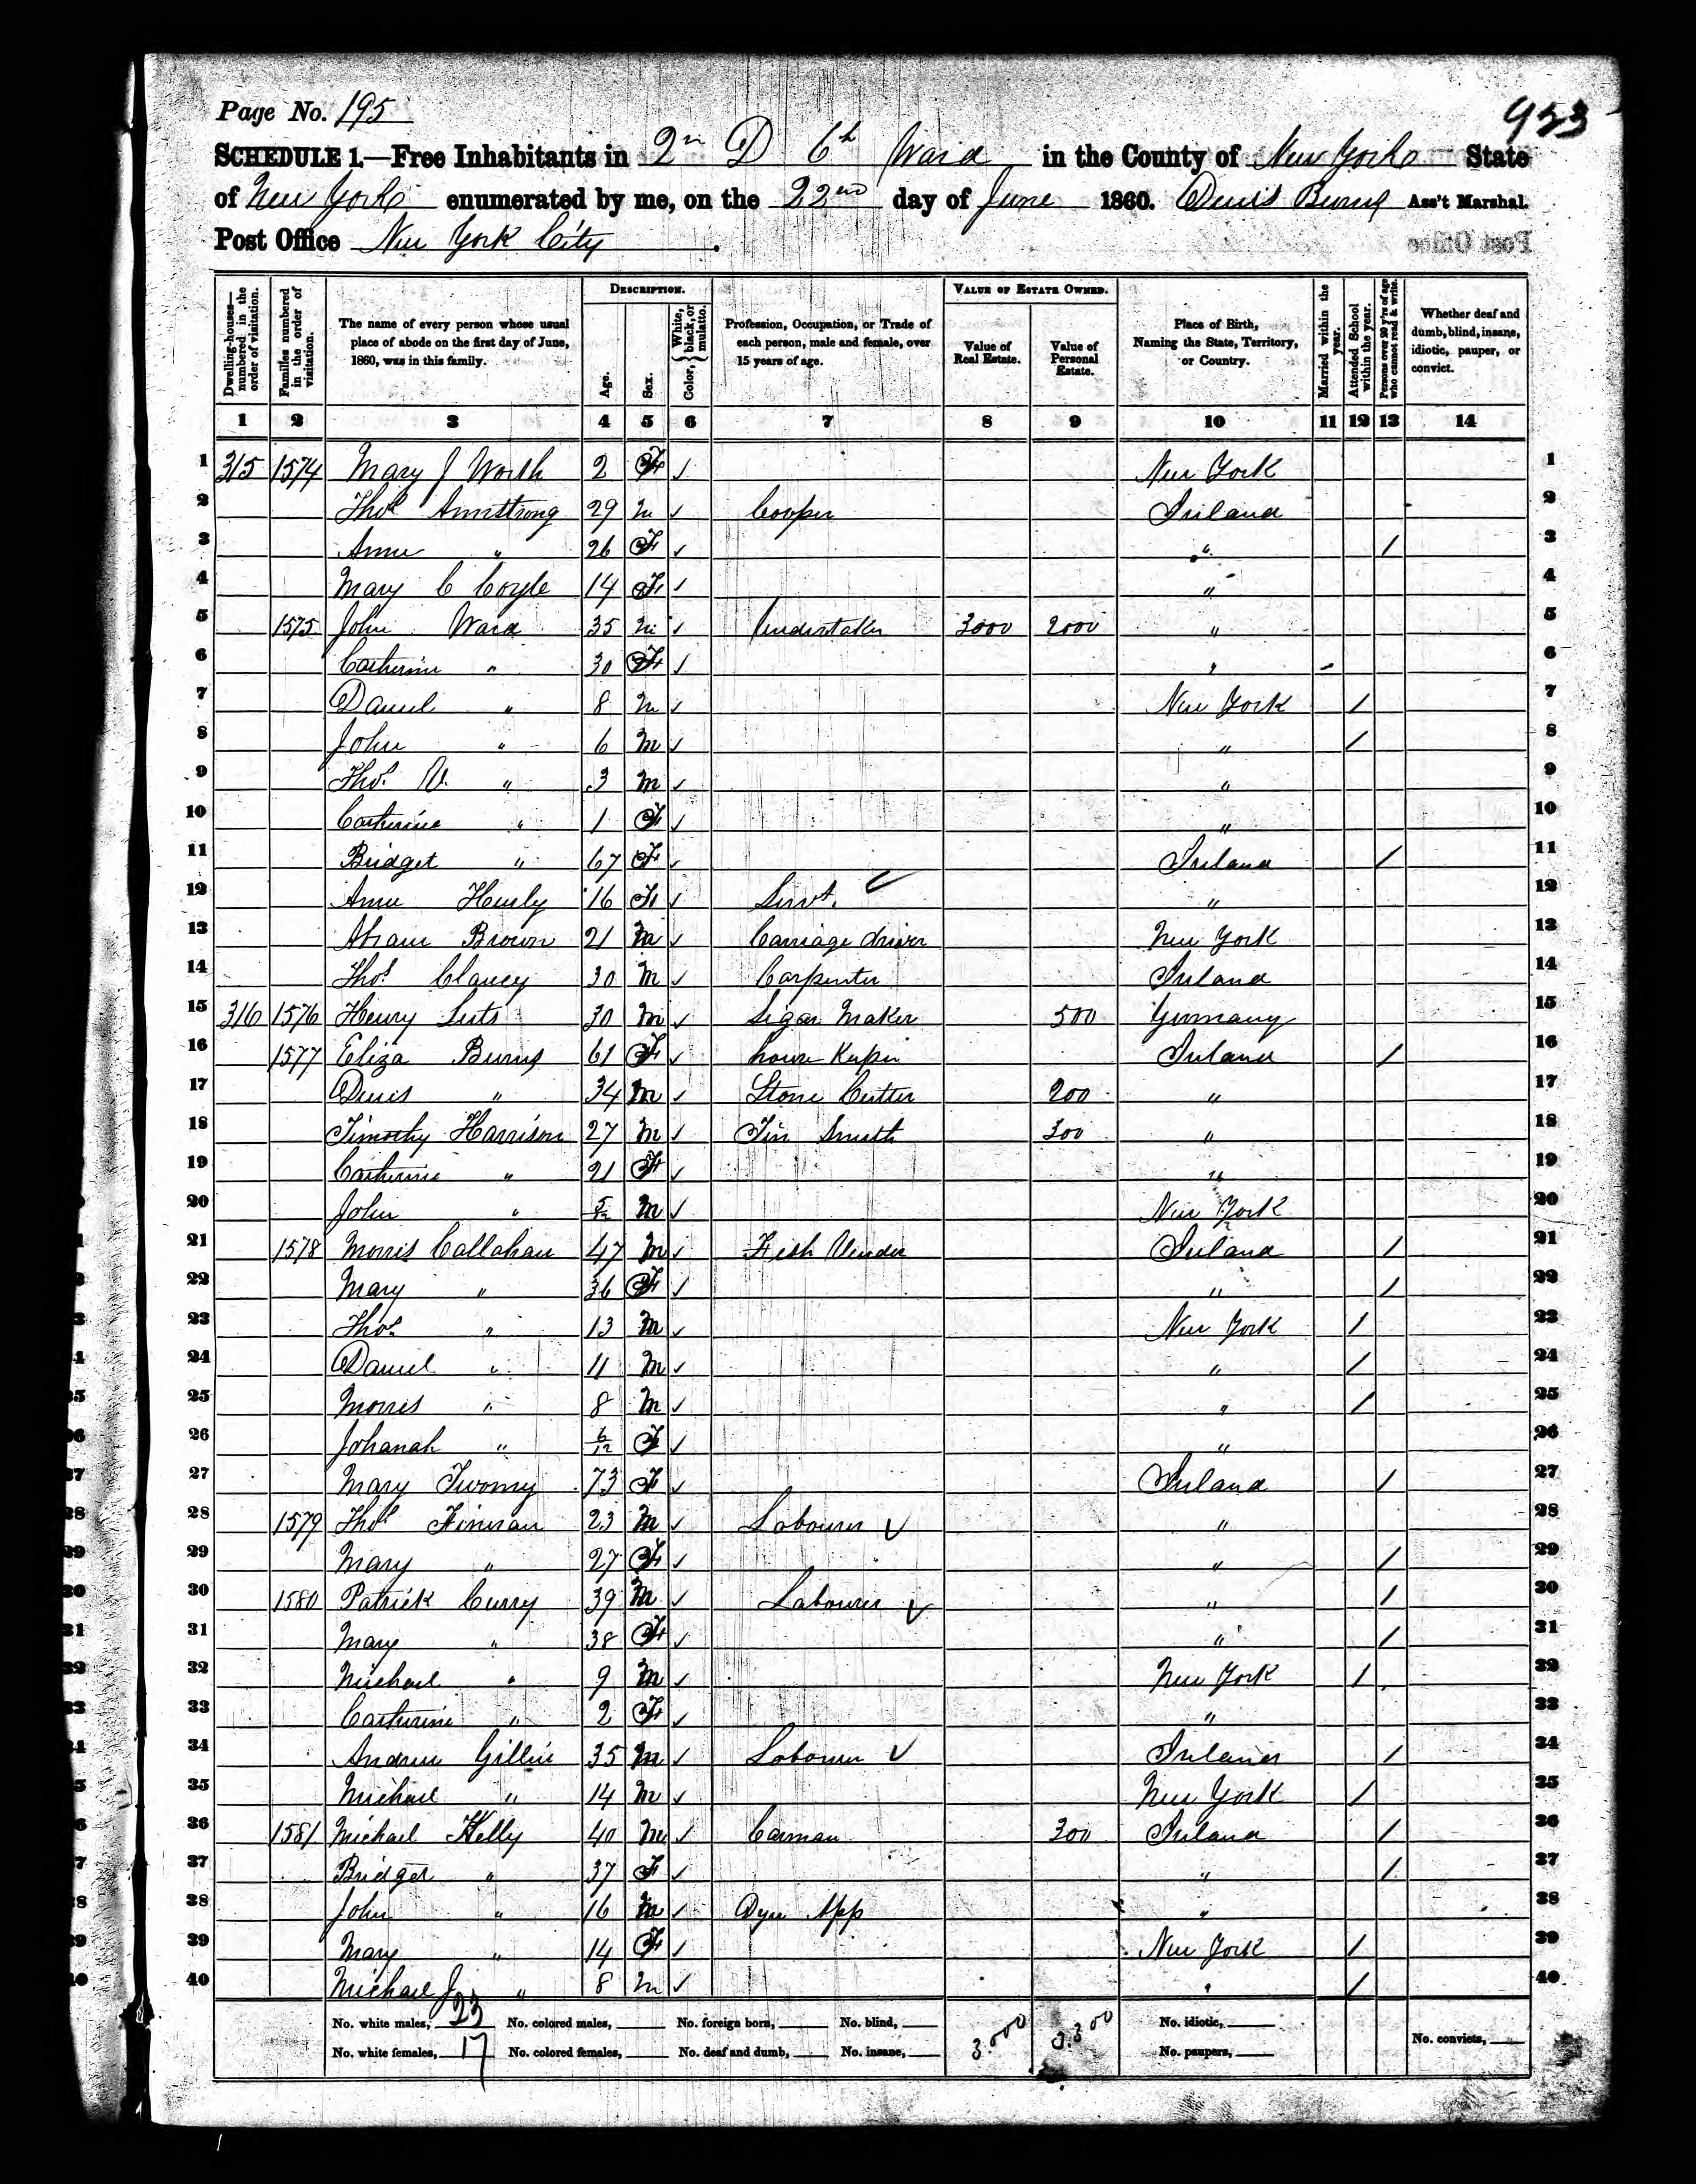 Page No. 195
923
SCHEDULE 1.—Free Inhabitants in 2n D 6th Ward in the County of New York State
of New York enumerated by me, on the 22nd day of June 1860. Denis Burns Ass't Marshal.
Post Office New York City.
Dwelling-houses—numbered in the order of visitation.
Families numbered in the order of visitation.
The name of every person whose usual place of abode on the first day of June, 1860, was in this family.
DESCRIPTION.
Age.
Sex.
Color, } White, black, or mulatto.
Profession, Occupation, or Trade of each person, male and female, over 15 years of age.
VALUE OF ESTATE OWNED.
Value of Real Estate.
Value of Personal Estate.
Place of Birth, Naming the State, Territory, or Country.
Married within the year.
Attended School within the year.
Persons over 20 y'rs of age who cannot read & write.
Whether deaf and dumb, blind, insane, idiotic, pauper, or convict.
1 2 3 4 5 6 7 8 9 10 11 12 13 14
1 315 1574 Mary J Worth 2 F ✓ New York 1
2 Thos Armstrong 29 M ✓ Cooper Ireland 2
3 Anne " 26 F ✓ " / 3
4 Mary C Coyle 14 F ✓ " 4
5 1575 John Ward 35 M ✓ Undertaker 3000 2000 " 5
6 Catherine " 30 F ✓ " 6
7 Daniel " 8 M ✓ New York / 7
8 John " 6 M ✓ " / 8
9 Thos W. " 3 M ✓ " 9
10 Catherine " 1 F ✓ " 10
11 Bridget " 67 F ✓ Ireland / 11
12 Anne Henly 16 F ✓ Servt. ✓ " 12
13 Abram Brown 21 M ✓ Carriage driver New York 13
14 Thos Clancy 30 M ✓ Carpenter Ireland 14
15 316 1576 Henry Luts 30 M ✓ Segar Maker 500 Germany 15
16 1577 Eliza Burns 61 F ✓ house Keeper Ireland / 16
17 Denis " 34 M ✓ Stone Cutter 200 " 17
18 Timothy Harrison 27 M ✓ Tin Smith 300 " 18
19 Catherine " 21 F ✓ " 19
20 John " 5/12 M ✓ New York 20
21 1578 Morris Callahan 47 M ✓ Fish Vender Ireland / 21
22 Mary " 36 F ✓ " / 22
23 Thos " 13 M ✓ New York / 23
24 Daniel " 11 M ✓ " / 24
25 Morris " 8 M ✓ " / 25
26 Johanah " 6/12 F ✓ " 26
27 Mary Twomy 73 F ✓ Ireland / 27
28 1579 Thos Fineran 23 M ✓ Labourer ✓ " 28
29 Mary " 27 F ✓ " / 29
30 1580 Patrick Curry 39 M ✓ Labourer ✓ " / 30
31 Mary " 38 F ✓ " / 31
32 Michael " 9 M ✓ New York / 32
33 Catherine " 2 F ✓ " 33
34 Andrew Gillen 35 M ✓ Labourer ✓ Ireland / 34
35 Michael " 14 M ✓ New York / 35
36 1581 Michael Kelly 40 M ✓ Carman 300 Ireland / 36
37 Bridget " 37 F ✓ " / 37
38 John " 16 M ✓ Dyer App " 38
39 Mary " 14 F ✓ New York / 39
40 Michael J " 8 M ✓ " / 40
No. white males, 23 No. colored males, No. foreign born, No. blind, 3000 3300 No. idiotic,
No. white females, 17 No. colored females, No. deaf and dumb, No. insane, No. paupers, No. convicts,